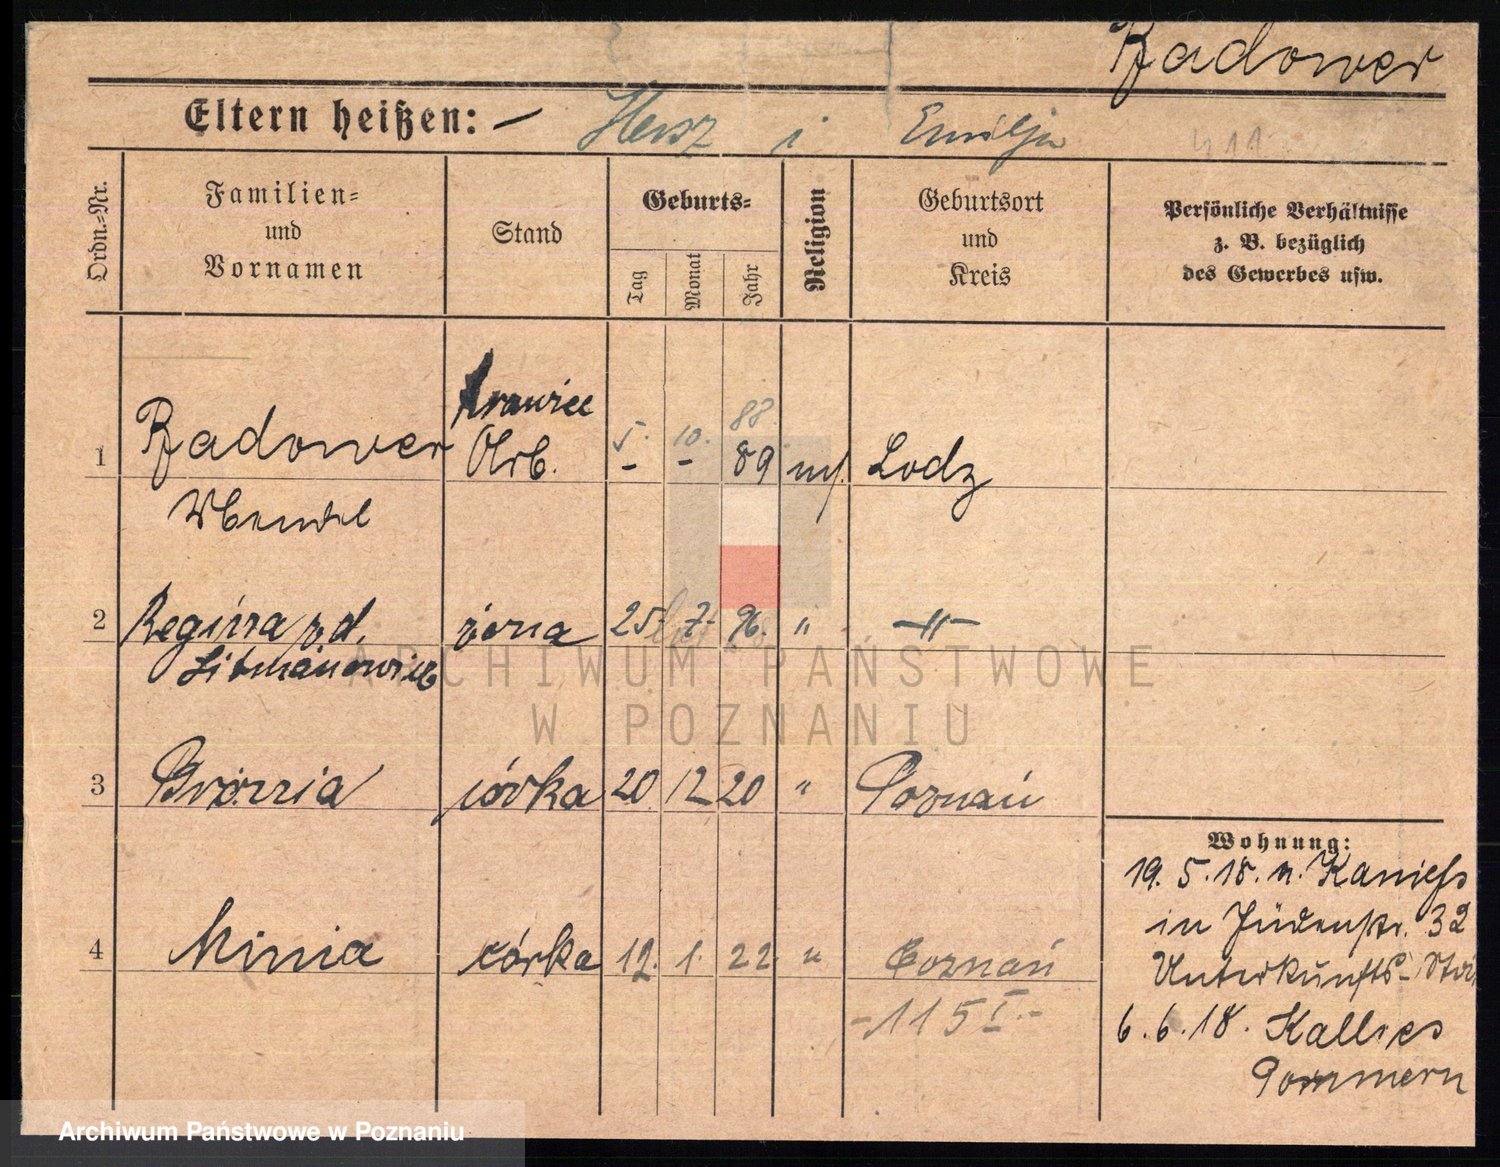 Radower
Eltern heißen: – Hersz i Emilja
411
Ordn.=Nr.
Familien=
und
Vornamen
Stand
Geburts=
Tag
Monat
Jahr
Religion
Geburtsort
und
Kreis
Persönliche Verhältnisse
z. B. bezüglich
des Gewerbes usw.
krawiec
88.
1 Radower Arb. 5. 10. 89 ms. Lodz
Mendel
2 Regina zd. żona 25. 7. 96. " –"–
Litmanowicz
3 Brónia córka 20 12 20 " Poznań
4 Minia córka 12. 1. 22 " Poznań
-115 I.-
Wohnung:
19. 5. 18. n.
in Judenstr. 32
Unterkunfts-
6. 6. 18. Kallies
Pommern
ARCHIWUM PAŃSTWOWE
W POZNANIU
Archiwum Państwowe w Poznaniu